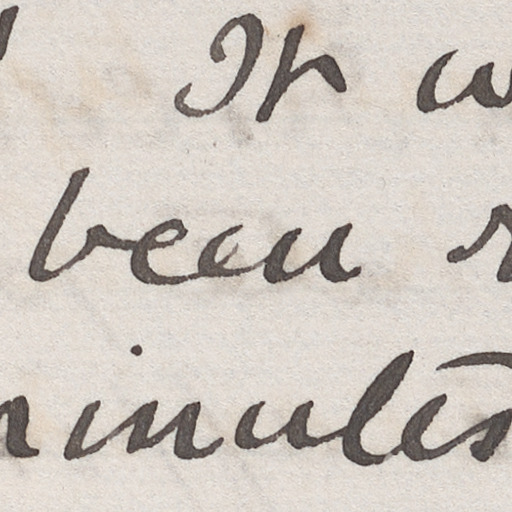 It
been
minutes